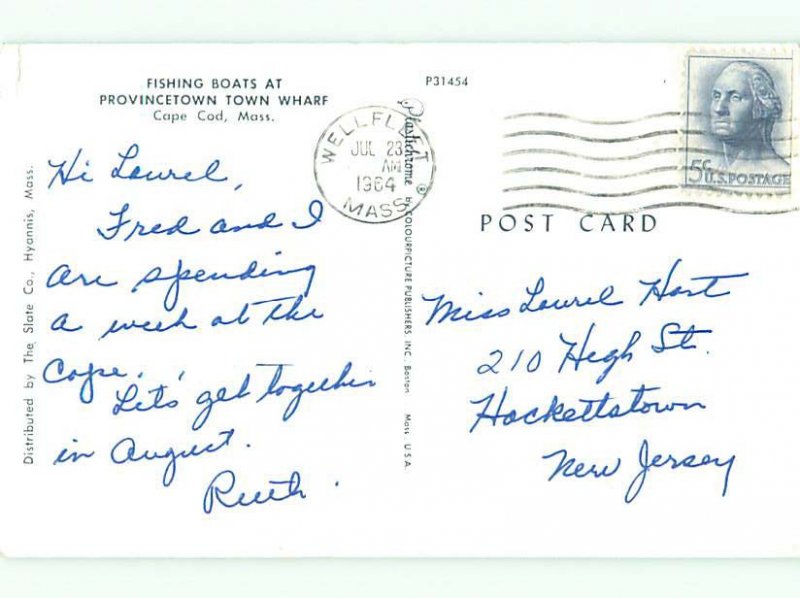 FISHING BOATS AT
PROVINCETOWN TOWN WHARF
Cape Cod, Mass.
P31454
WELLFLEET
JUL 23
AM
1964
MASS
5c U.S. POSTAGE
POST CARD
Distributed by The Slate Co., Hyannis, Mass.
Plastichrome ® by COLOURPICTURE PUBLISHERS, INC. Boston Mass. U.S.A.
Hi Laurel,
Fred and I
are spending
a week at the
Cape.
Let's get together
in August.
Ruth.
Miss Laurel Hart
210 High St.
Hackettstown
New Jersey